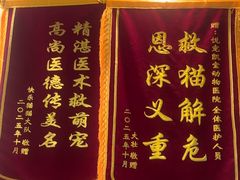 赠：动物医院全体医护人员
救猫解危
恩深义重
大壮 敬赠
二〇二五年十月
精湛医术救萌宠
高尚医德传美名
快乐猫猫大队 敬赠
二〇二五年十月